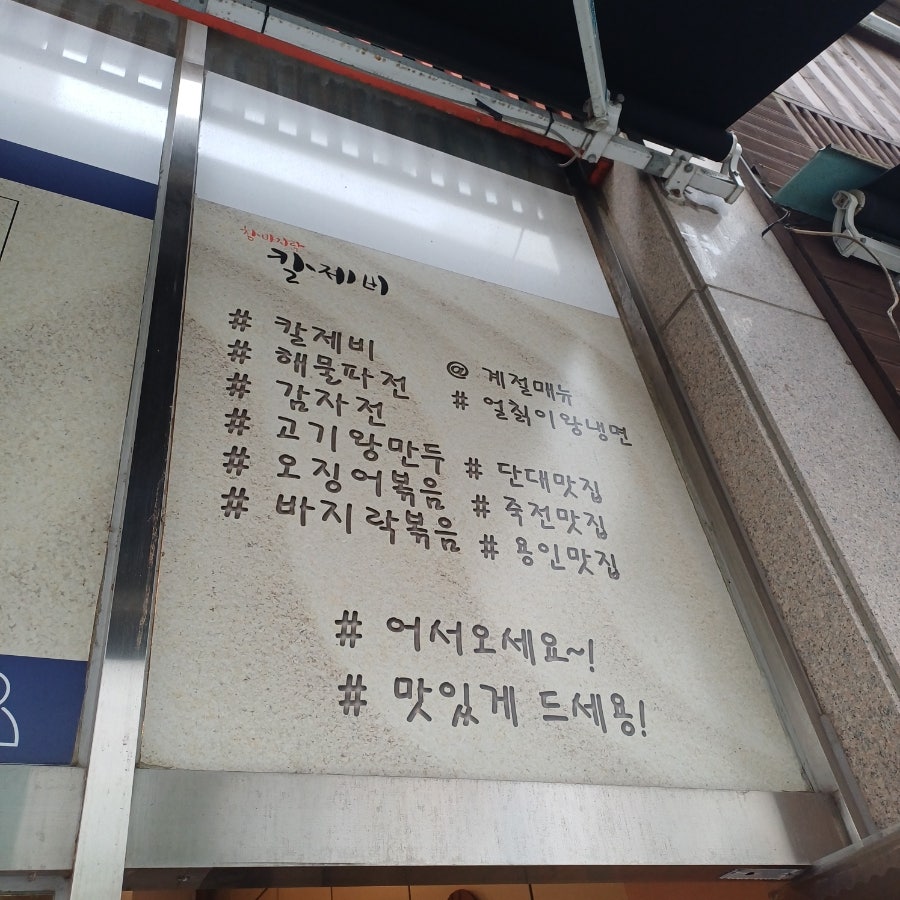 참·바지락
칼제비
# 칼제비
# 해물파전
# 감자전
# 고기왕만두
# 오징어볶음
# 바지락볶음
@ 계절매뉴
# 얼칡이왕냉면
# 단대맛집
# 죽전맛집
# 용인맛집
# 어서오세요~!
# 맛있게 드세용!